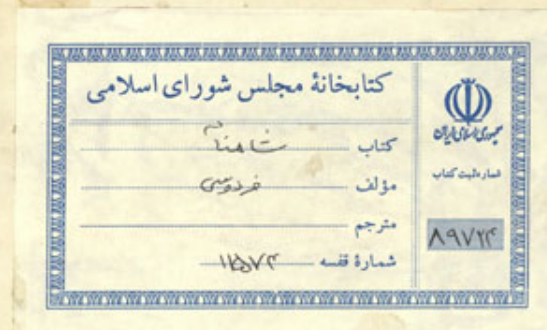 کتابخانهٔ مجلس شورای اسلامی
کتاب شاهنامه
مؤلف فردوسی
مترجم
شمارهٔ قفسه
جمهوری اسلامی ایران
شماره ثبت کتاب
۸۹۷۲۴